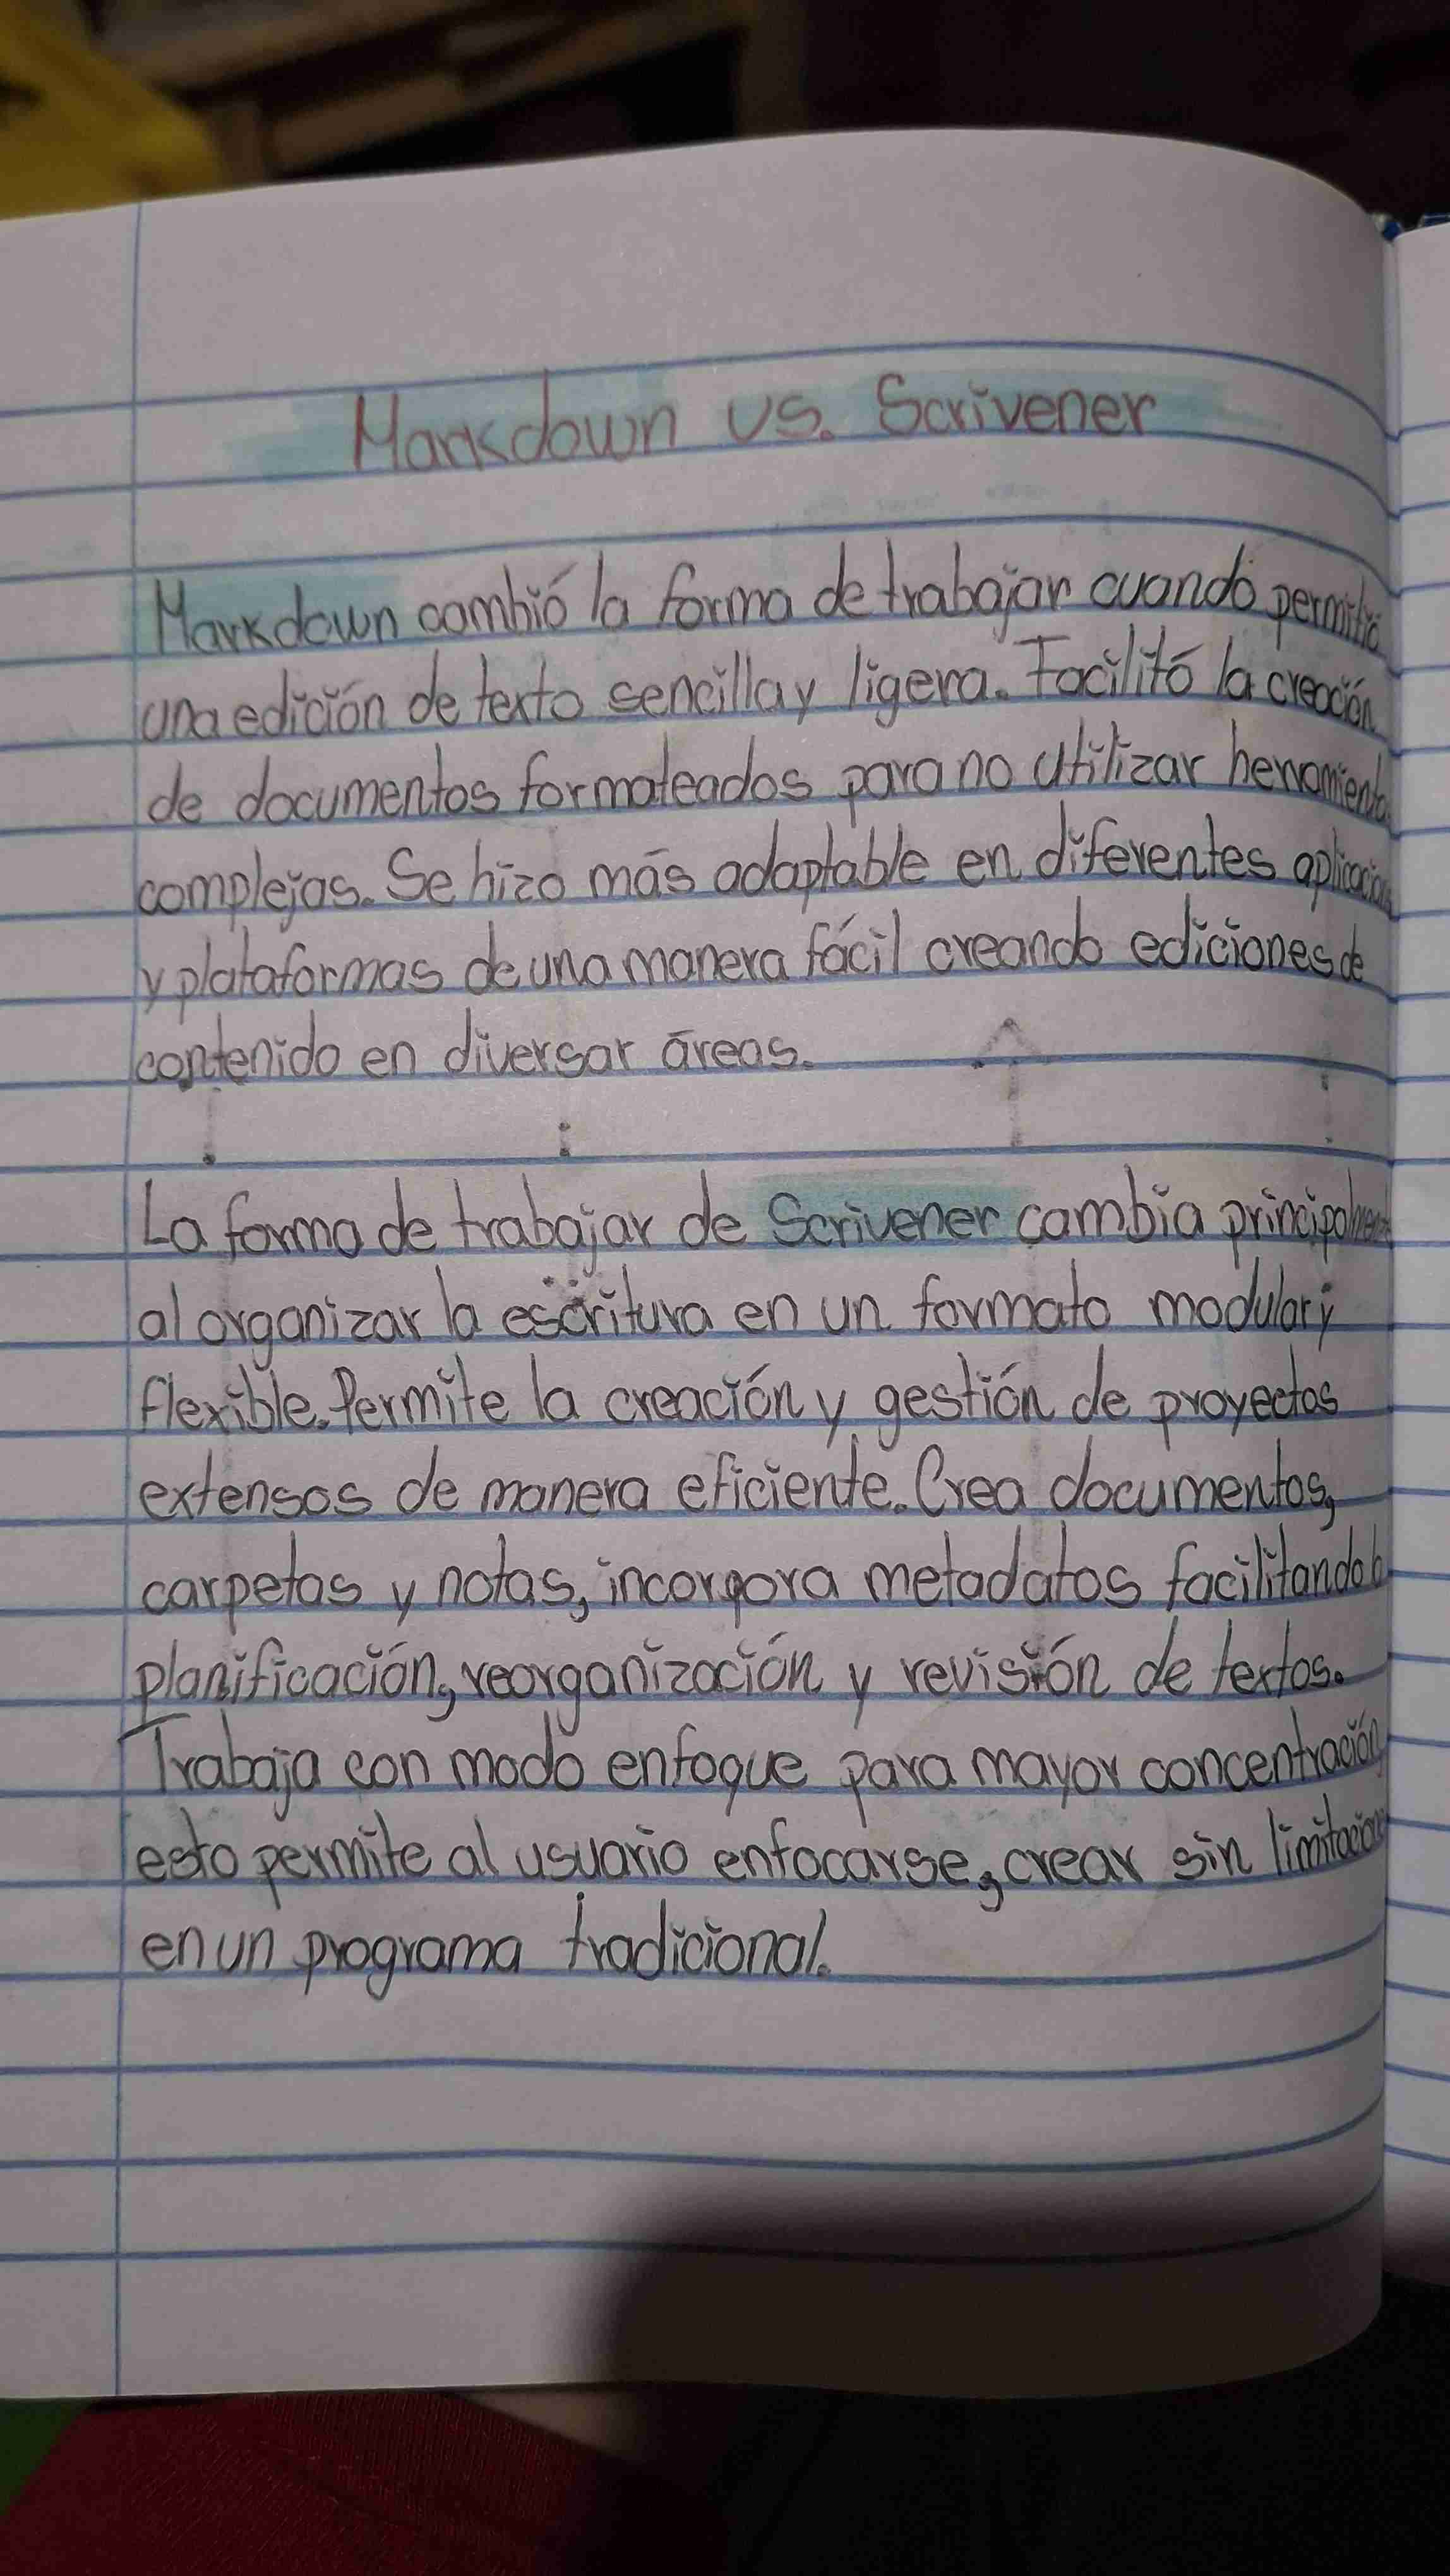 Markdown vs. Scrivener
Markdown cambió la forma de trabajar cuando permitió
una edición de texto sencilla y ligera. Facilitó la creación
de documentos formateados para no utilizar herramientas
complejas. Se hizo más adaptable en diferentes aplicaciones
y plataformas de una manera fácil creando ediciones de
contenido en diversar áreas.
La forma de trabajar de Scrivener cambia principalmente
al organizar la escritura en un formato modular y
flexible. Permite la creación y gestión de proyectos
extensos de manera eficiente. Crea documentos,
carpetas y notas, incorpora metadatos facilitando la
planificación, reorganización y revisión de textos.
Trabaja con modo enfoque para mayor concentración,
esto permite al usuario enfocarse, crear sin limitaciones
en un programa tradicional.